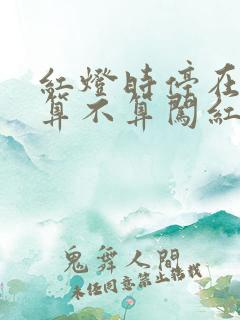 紅燈時停在
算不算闖紅
鬼舞人間
未經同意禁止轉載